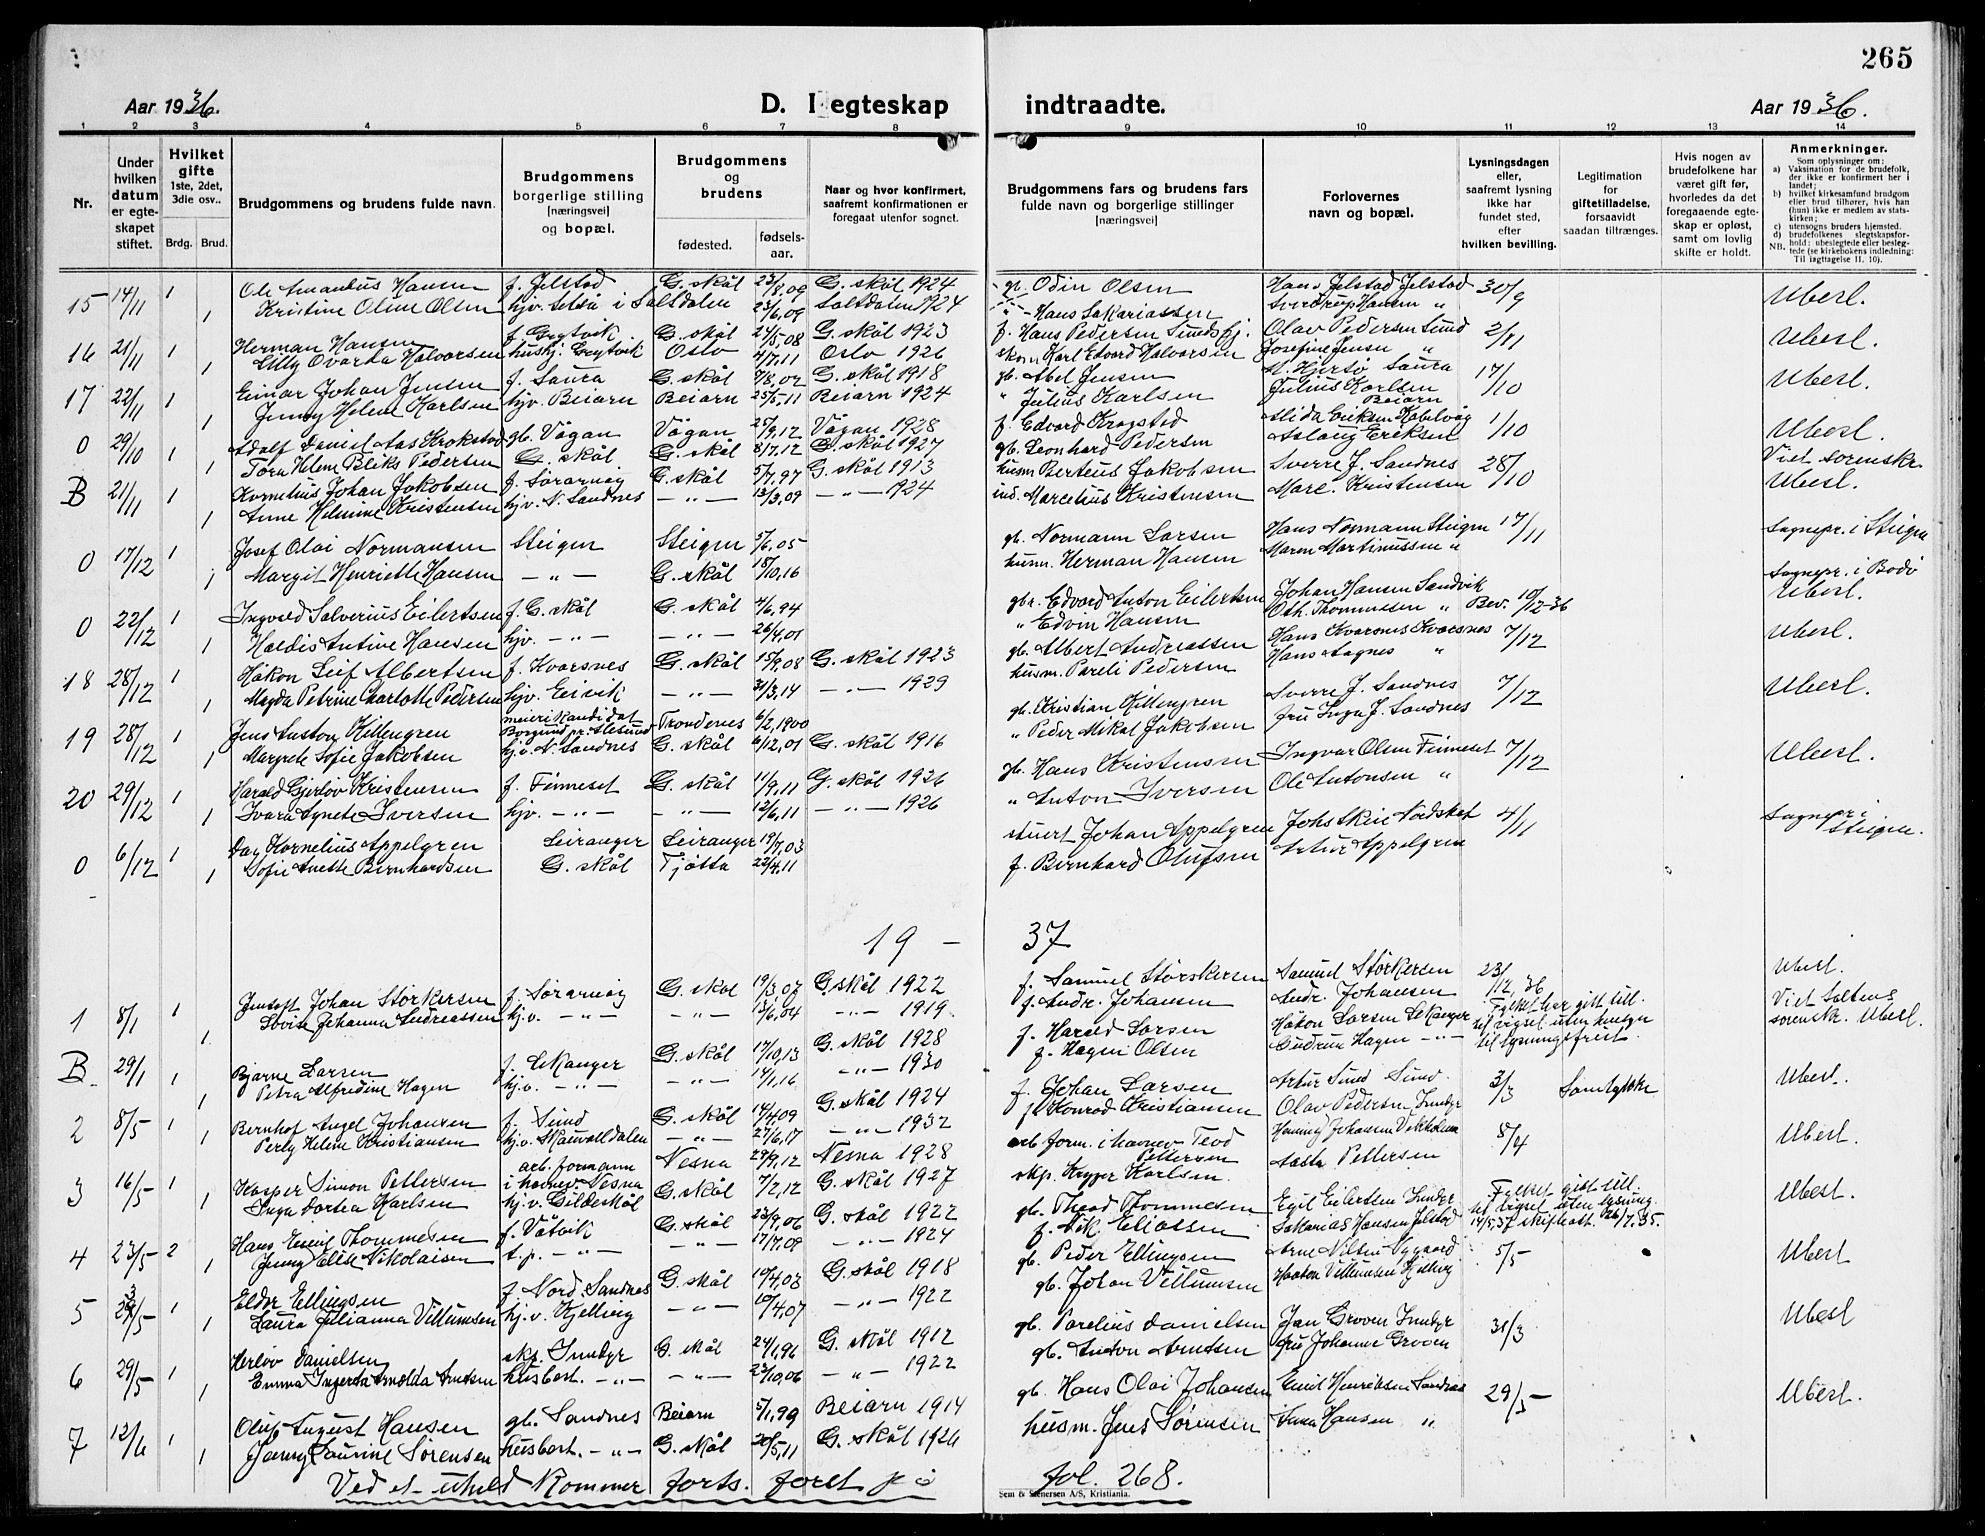 265
Aar 1936.
D. I egteskap
indtraadte.
Aar 1936.
1 2 3 4 5 6 7 8 9 10 11 12 13 14
Nr.
Under hvilken datum er egteskapet stiftet.
Hvilket gifte 1ste, 2det, 3die osv..
Brdg. Brud.
Brudgommens og brudens fulde navn.
Brudgommens borgerlige stilling [næringsvei] og bopæl.
Brudgommens og brudens
fødested.
fødsels-aar.
Naar og hvor konfirmert, saafremt konfirmationen er foregaat utenfor sognet.
Brudgommens fars og brudens fars fulde navn og borgerlige stillinger [næringsvei]
Forlovernes navn og bopæl.
Lysningsdagen eller, saafremt lysning ikke har fundet sted, efter hvilken bevilling.
Legitimation for giftetilladelse, forsaavidt saadan tiltrænges.
Hvis nogen av brudefolkene har været gift før, hvorledes da det foregaaende egteskap er opløst, samt om lovlig skifte er holdt.
Anmerkninger.
Som oplysninger om:
a) Vaksination for de brudefolk, der ikke er konfirmert her i landet;
b) hvilket kirkesamfund brudgom eller brud tilhører, hvis han (hun) ikke er medlem av statskirken;
c) utensogns bruders hjemsted.
d) brudefolkenes slegtskapsforhold: ubeslegtede eller beslegtede (se kirkebokens indledning:
NB. Til iagttagelse II. 10).
15 14/11 1 Ole Amandus Hansen f. Jelstad G. skål 23/8,09 G. skål 1924 gb. Odin Olsen Hans Jelstad Jelstad 30/9 Ubesl.
1 Kristine Oline Olsen hjv. i Saltdalen 23/6,09 Saltdalen 1924 Hans Sakariassen Hansen "
16 21/11 1 Herman Hansen f. Grytvik G. skål 24/5,08 G. skål 1923 f. Hans Pedersen Olav Pedersen Sund 2/11 Ubesl.
1 Lilly Ovarda Halvorsen hushj. Grytvik Oslo 4/7,11 Oslo 1926 Karl Edvard Halvorsen Josefine Jensen "
17 22/11 1 Einar Johan Jensen f. Saura G. skål 7/8,02 G. skål 1918 gb. Abel Jensen Hjertø Saura 17/10 Ubesl.
1 Jenny Helene Karlsen hjv. Beiarn Beiarn 25/5,11 Beiarn 1924 " Julius Karlsen Julius Karlsen Beiarn
0 29/10 1 Adolf Daniel Aas Krokstad gb. Vågan Vågan 25/9,12 Vågan 1928 f. Edvard Krogstad Alida Eriksen Kabelvåg 1/10 Ubesl.
1 Tora Helene Bliks Pedersen G. skål G. skål 8/7,12 G. skål 1927 gb. Leonhard Pedersen Aslaug Eriksen Viet sorenskr.
B 21/11 1 Kornelius Johan Jakobsen f. Sørarnøy G. skål 5/7,97 G. skål 1913 husm Berteus Jakobsen Sverre J. Sandnes 28/10 Ubesl.
1 Anne Helmine Kristensen hjv. N. Sandnes - " - 13/3,09 - " - 1924 ind. Marcelius Kristensen Marc. Kristensen
0 17/12 1 Josef Olai Normansen Steigen Steigen 5/6,05 gb. Normann Larsen Hans Normann Steigen 17/11 Sognepr. i Steigen
1 Margit Henriette Hansen - " - G. skål 18/10,16 husm. Herman Hansen Maren Martinussen "
0 22/12 1 Ingvald Salverius Eilertsen f. G. skål G. skål 4/6,94 gbr. Edvard Anton Eilertsen Johan Hansen Sandvik Bev. 10/12-36 Sognepr. i Bodø Ubesl.
1 Haldis Antine Hansen hjv. - " - - " - 26/4,01 " Edvin Hansen Oth. Thommesen "
18 28/12 1 Håkon Leif Albertsen f. Kvarsnes G. skål 15/9,08 G. skål 1923 gb. Albert Andreassen Hans Kvarsnes Kvarsnes 7/12 Ubesl.
1 Magda Petrine Charlotte Pedersen hjv. Eivik - " - 31/3,14 - " - 1929 husm. Pareli Pedersen Hans Aagnes "
19 28/12 1 Jens Gustav Killengren meierikandidat Borgund pr. Ålesund Trondenes 6/2,1900 gb. Kristian Killengren Sverre J. Sandnes 7/12 Ubesl.
1 Margrete Sofie Jakobsen hjv. N. Sandnes G. skål 6/12,01 G. skål 1916 " Peder Mikal Jakobsen fru Inga J. Sandnes
20 29/12 1 Harald Gjerløv Kristensen f. Finneset G. skål 11/9,11 G. skål 1926 gb. Hans Kristensen Ingvar Olsen Finneset 7/12 Ubesl.
1 Ivara Agnete Iversen hjv. - " - - " - 12/6,11 - " - 1926 " Anton Iversen Ole Antonsen "
0 6/12 1 Dag Kornelius Appelgren Leiranger Leiranger 19/7,03 stuert Johan Appelgren Johs Skeie Nordskot 4/11 Sognepr. i Steigen.
1 Sofie Anette Bernhardsen G. skål Tjøtta 22/4,11 f. Bernhard Olufsen Artur Appelgren
19 - 37
1 8/1 1 Jentoft Johan Størkersen f. Sørarnøy G. skål 19/3,07 G. skål 1922 f. Samuel Størkersen Samuel Størkersen 23/12,36 Ubesl.
1 Lovise Johanna Andreassen hj.v. - " - - " - 13/6,04 - " - 1919. f. Andr. Johansen Andr. Johansen
B. 29/1 1 Bjarne Larsen f. Lekanger G. skål 17/10,13 G. skål 1928 f. Harald Larsen Håkon Larsen Lekanger Fylket har gitt till. til vigsel uten hensyn til lysningsfrist. Viet Saltens sorenskr. Ubesl.
1 Petra Alfredine Hagen hj.v. - " - - " - 14/1,16 - " - 1930 f. Hagen Olsen Gudrun Hagen - " -
2 8/5 1 Bernhof Angel Johansen f. Sund G. skål 14/4,09 G. skål 1924 f. Johan Larsen Artur Sund Sund. 3/3 Samtykke Ubesl.
1 Perly Helene Kristiansen hj.v. Skauvolldalen - " - 27/6,17 - " - 1932 Konrad Kristiansen Olav Pedersen Inndyr
3 16/5 1 Kasper Simon Pettersen arb. formann i havnev. Nesna Nesna 29/9,12 Nesna 1928 arb. form. i havnev. Teod Pettersen Henning Johansen 8/4 Ubesl.
1 Inga Dortea Karlsen hj.v. Gildeskål G. skål 7/2,12 G. skål 1927 skp. Karlsen Pettersen
4 23/5 2 Hans Emil Thommesen f. Våtvik G. skål 23/9,06 G. skål 1922 gb. Thommesen Egil Eilertsen Inndyr Fylket gitt till. til vigsel uten lysning. 14/5,37 Ubesl.
1 Jenny Elise Nikolaisen t.p. - " - - " - 17/7,09 - " - 1924 f. Nik. Eliassen Sakarias Hansen Jelstad
5 23/5 1 Eldor Ellingsen f. Nord. Sandnes G. skål 10/4,08 G. skål 1918 gb. Peder Ellingsen Arne Nilsen Nygaard 5/5 Ubesl
1 Laura Julianna Villumsen hj.v. Kjelling - " - 10/4,07 - " - 1922 gb. Johan Villumsen Haakon Villumsen Kjelling
6 29/5 1 Herløv Danielsen skp. Inndyr G. skål 24/1,96 G. skål 1912 gb. Parelius Danielsen Jan Groven Inndyr 31/3 Ubesl
1 Emma Ingerda Arnolda Arntsen husbest. - " - - " - 23/10,06 - " - 1922 gb. Anton Arntsen fru Johanne Groven
7 12/6 1 Oluf August Hansen gb. Sandnes Beiarn 5/1,99 Beiarn 1914 gb. Hans Olai Johansen Emil Henriksen Sandnes 29/5 Ubesl.
1 Jenny Laurine Sørensen husbest. - " - G. skål 20/5,11 G. skål 1926 husm. Jens Sørensen Anna Hansen "
Ved et uheld kommer forts. foret på fol. 268.
Sem & Stenersen A/S, Kristiania.